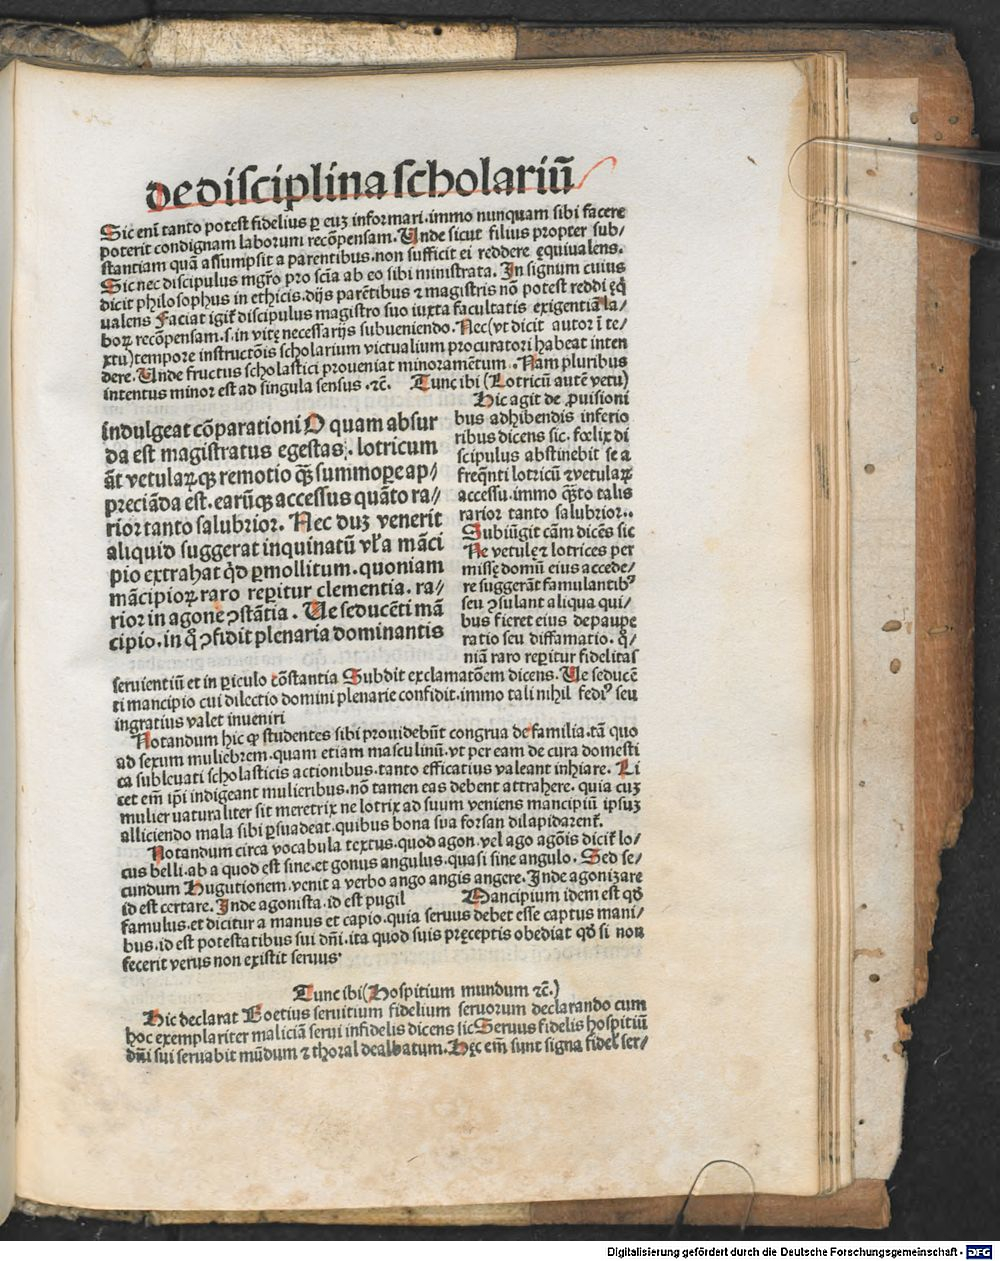 de disciplina scholariū
Sic enī tanto potest fidelius ꝑ euꝫ informari. immo nunquam sibi facere
poterit condignam laborum recōpensam. Unde sicut filius propter sub/
stantiam quā assumpsit a parentibus. non sufficit ei reddere ęquiualens.
Sic nec discipulus mgr̄o pro scīa ab eo sibi ministrata. In signum cuius
dicit philosophus in ethicis. dijs parētibus ⁊ magistris nō potest reddi ęq̄
ualens Faciat igit̄ discipulus magistro suo iuxta facultatis exigentiā la/
boꝝ recōpensam. s. in vitę necessarijs subueniendo. Nec (vt dicit autor ī te/
xtu) tempore instructōis scholarium victualium procuratori habeat inten
dere. Unde fructus scholastici proueniat minoramētum. Nam pluribus
intentus minor est ad singula sensus. ⁊c̄. Tunc ibi (Lotricū autē vetu)
indulgeat cōparationi O quam absur
da est magistratus egestas. lotricum
āt vetulaꝝqꝫ remotio qꝫ̄ summoꝑe ap/
preciāda est. earūqꝫ accessus quāto ra/
rior tanto salubrior. Nec duꝫ venerit
aliquid suggerat inquinatū vl̓a māci
pio extrahat qd̓ ꝑmollitum. quoniam
mācipioꝝ raro reꝑitur clementia. ra/
rior in agone ꝯstātia. Ue seducēti mā
cipio. in q̊ ꝯfidit plenaria dominantis
Hic agit de ꝓuisioni
bus adhibendis inferio
ribus dicens sic. fœlix di
scipulus abstinebit se a
freq̄nti lotricū ⁊ vetulaꝝ
accessu. immo qꝫ̄to talis
rarior tanto salubrior..
Subiūgit cām dicēs sic
Ne vetulę ⁊ lotrices per
missę domū eius accede/
re suggerāt famulantibꝰ
seu ꝯsulant aliqua qui/
bus fieret eius depaupe
ratio seu diffamatio. q̊/
niā raro reꝑitur fidelitas
seruientiū et in ꝑiculo cōstantia Subdit exclamatōem dicens. Ue seducē
ti mancipio cui dilectio domini plenarie confidit. immo tali nihil fediꝰ seu
ingratius valet inueniri
Notandum hic ꝙ studentes sibi prouidebūt congrua de familia. tā quo
ad sexum muliebrem. quam etiam masculinū. vt per eam de cura domesti
ca subleuati scholasticis actionibus. tanto efficatius valeant inhiare. Li
cet em̄ ip̄i indigeant mulieribus. nō tamen eas debent attrahere. quia cuꝫ
mulier uaturaliter sit meretrix ne lotrix ad suum veniens mancipiū ipsuꝫ
alliciendo mala sibi ꝑsuadeat. quibus bona sua forsan dilapidarent̄.
Notandum circa vocabula textus. quod agon. vel ago agōis dicit̄ lo/
cus belli. ab a quod est sine. et gonus angulus. quasi sine angulo. Sed se/
cundum Hugutionem. venit a verbo ango angis angere. Inde agonizare
id est certare. Inde agonista. id est pugil Mancipium idem est qd̓
famulus. et dicitur a manus et capio. quia seruus debet esse captus mani/
bus. id est potestatibus sui dn̄i. ita quod suis pręceptis obediat qd̓ si non
fecerit verus non existit seruus.
Tunc ibi (Hospitium mundum ⁊c̄.)
Hic declarat Boetius seruitium fidelium seruorum declarando cum
hoc exemplariter maliciā serui infidelis dicens sic Seruus fidelis hospitiū
dn̄i sui seruabit mūdum ⁊ thoral dealbatum. Hęc em̄ sunt signa fidel̓ ser/
Digitalisierung gefördert durch die Deutsche Forschungsgemeinschaft - DFG